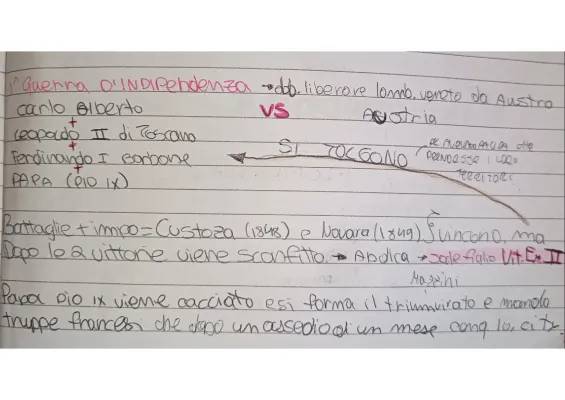 1° Guerra D'INDIPendenza → dob. liberare lomb. veneto da Austro
carlo Alberto VS AUstria
+
Leopoldo II di Toscana
+
Ferdinando I Borbone SI TOLGONO
+
PAPA (PIO IX)
Battaglie + impo = Custoza (1848) e Novara (1849) vincono, ma
Dopo le 2 vittorie viene sconfitto. → Abdica → cede figlio Vit. Em. II
Mazzini
Papa Pio IX viene cacciato e si forma il triumvirato e manda
truppe francesi che dopo un assedio di un mese conq la citt.